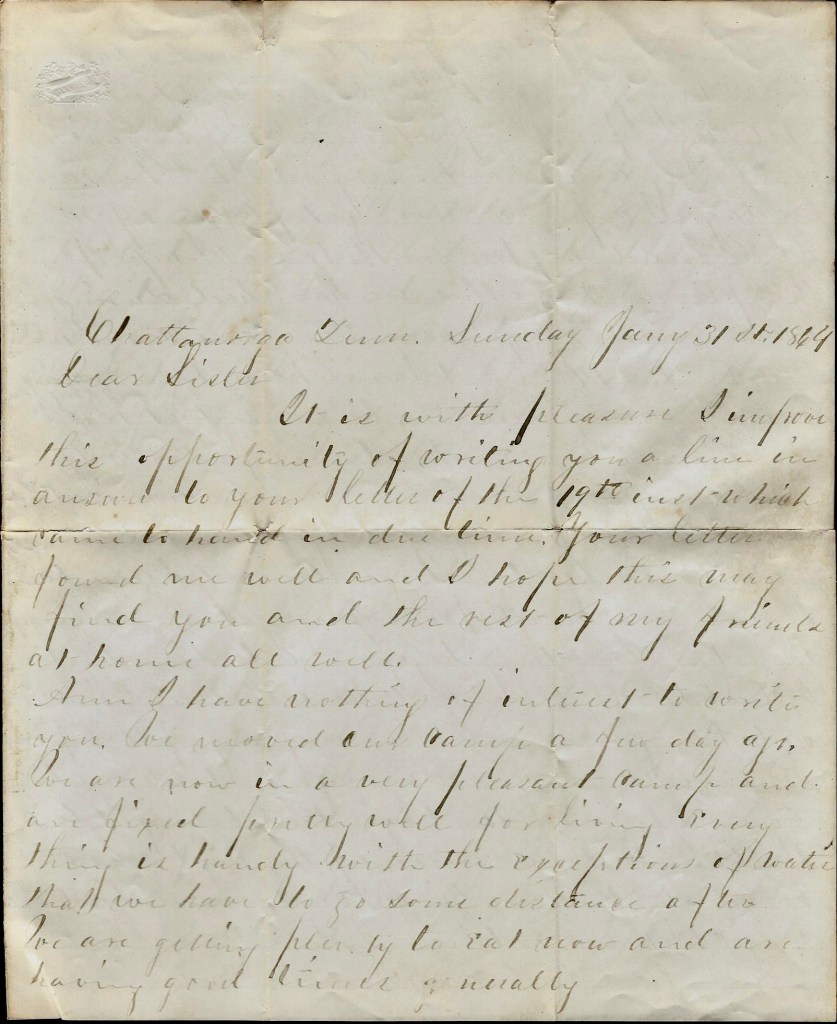 Chattanooga Tenn. Sunday Jany 31st. 1864
Dear Sister
It is with pleasure I improve
this opportunity of writing you a line in
answer to your letter of the 19th inst which
came to hand in due time. Your letter
found me well and I hope this may
find you and the rest of my friends
at home all well.
Ann I have nothing of interest to write
you. We moved our camp a few day ago.
We are now in a very pleasant camp and
are fixed pretty well for living Every
thing is handy with the exceptions of water
that we have to go some distance after
We are getting plenty to eat now and are
having good times generally